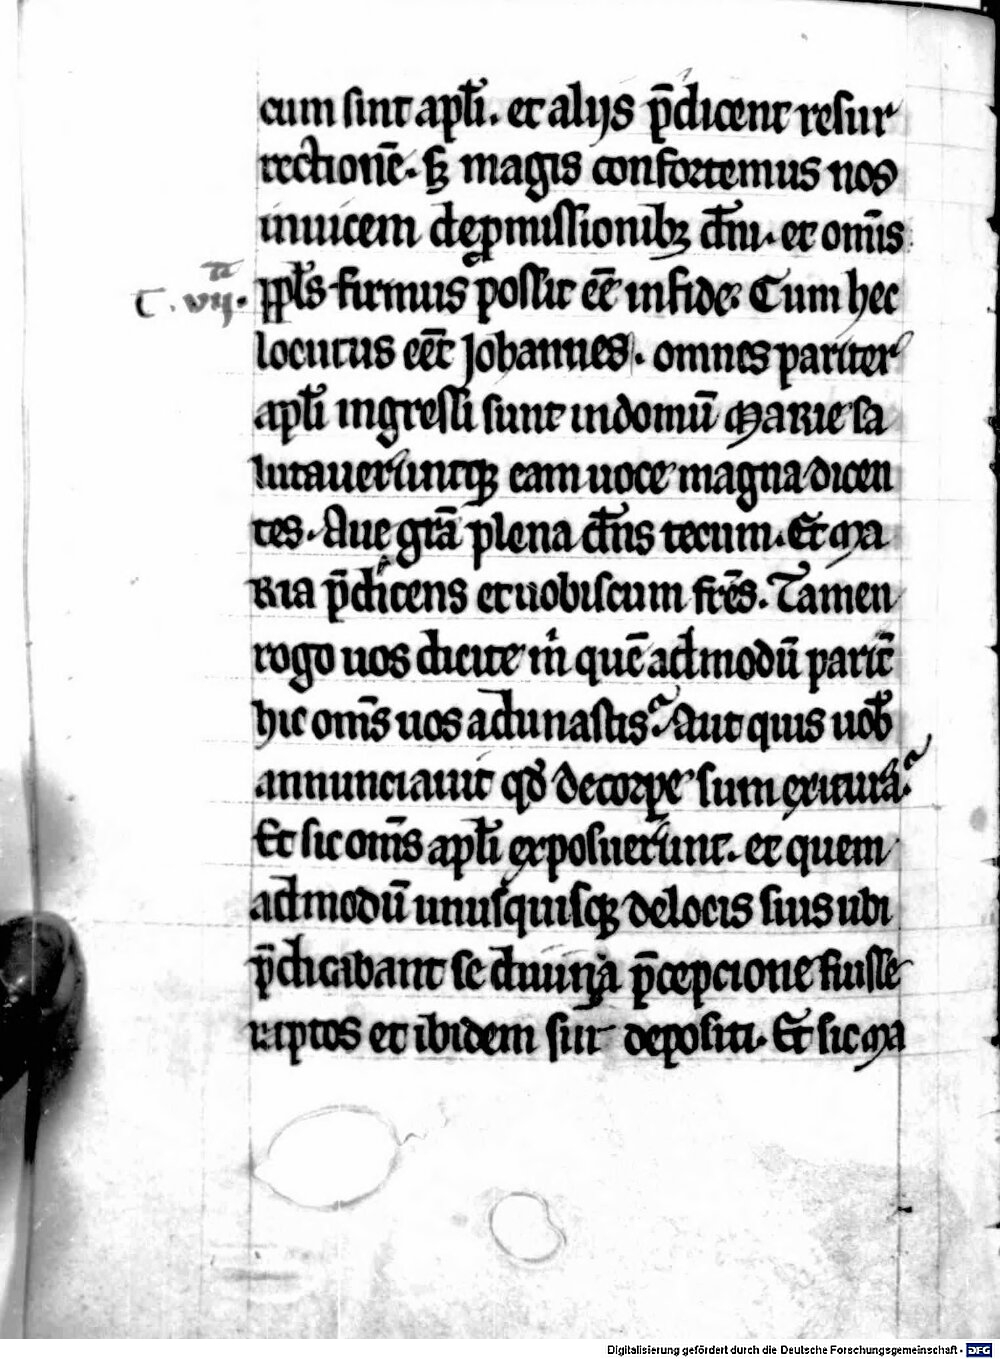 cum sint apl̄i. et alijs p̄dicent resur
rectionē. sꝫ magis confortemus nos
inuicem de ꝓmissionibꝫ dn̄i. et omīs
ppl̄s firmus possit eē in fide. Cum hec
C. vijͣ.
locutus eēt Johannes. omnes pariter
apl̄i ingressi sunt in domū MARIE sa
lutaueruntqꝫ eam uoce magna dicen
tes. Aue gr̄a plena dn̄s tecum. Et MA
RIA p̄dicens et uobiscum fr̄es. Tamen
rogo uos dicite m̄ quē admodū parit̄
hic om̄s uos adunastis? Aut quis uob̄
annunciauit qd̄ de corpe sum exitura?
Et sic om̄s apl̄i exposuerunt. et quem
admodū unusquisqꝫ de locis suis ubi
p̄dicabant se diuina p̄cepcione fuisse
raptos et ibidem sūt depositi. Et sic MA
Digitalisierung gefördert durch die Deutsche Forschungsgemeinschaft - DFG